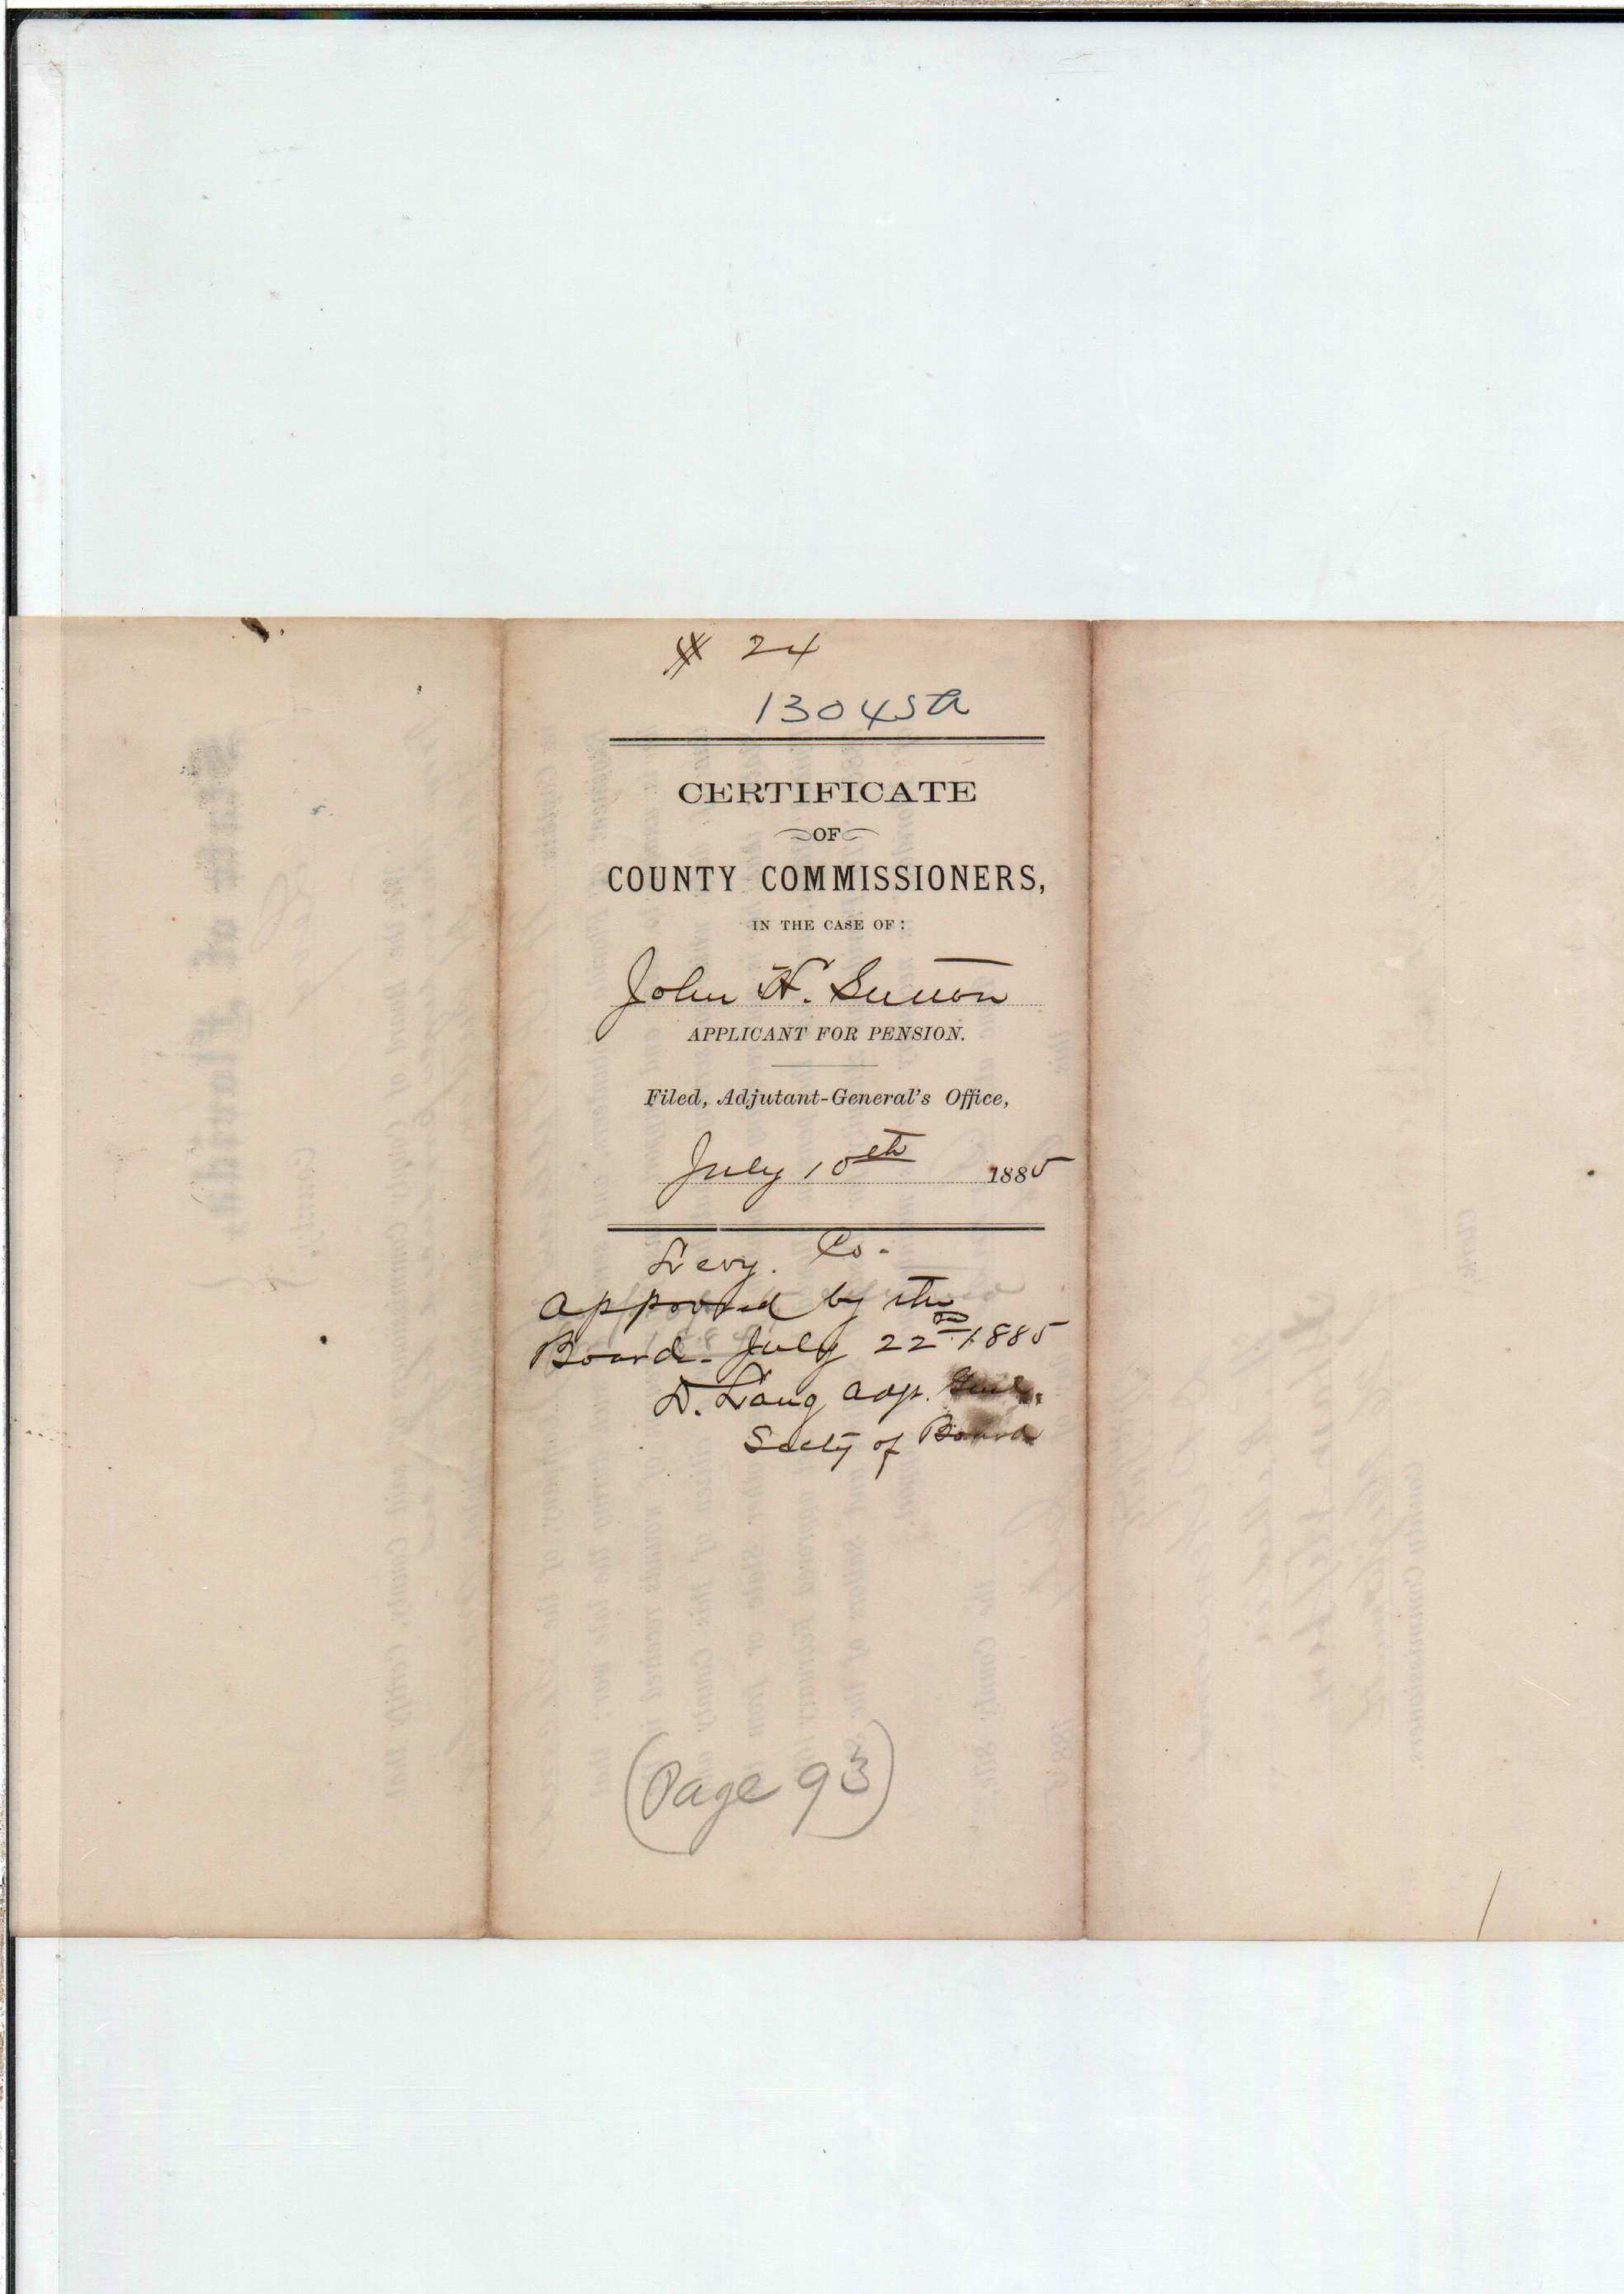 # 24
13045a
CERTIFICATE
OF
COUNTY COMMISSIONERS,
IN THE CASE OF:
John H. Sutton
APPLICANT FOR PENSION.
Filed, Adjutant-General's Office,
July 10th 1885
Levy. Co.
Approved by the
Board. July 22nd 1885
D. Lang Adjt. Genl.
Secty of Board
(Page 93)